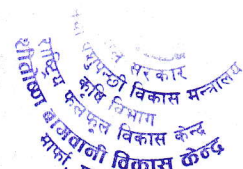 सरकार
पशुपन्छी विकास मन्त्रालय
कृषि विभाग
राष्ट्रिय फलफूल विकास केन्द्र
शीतोष्ण बागवानी विकास केन्द्र
मार्फा,